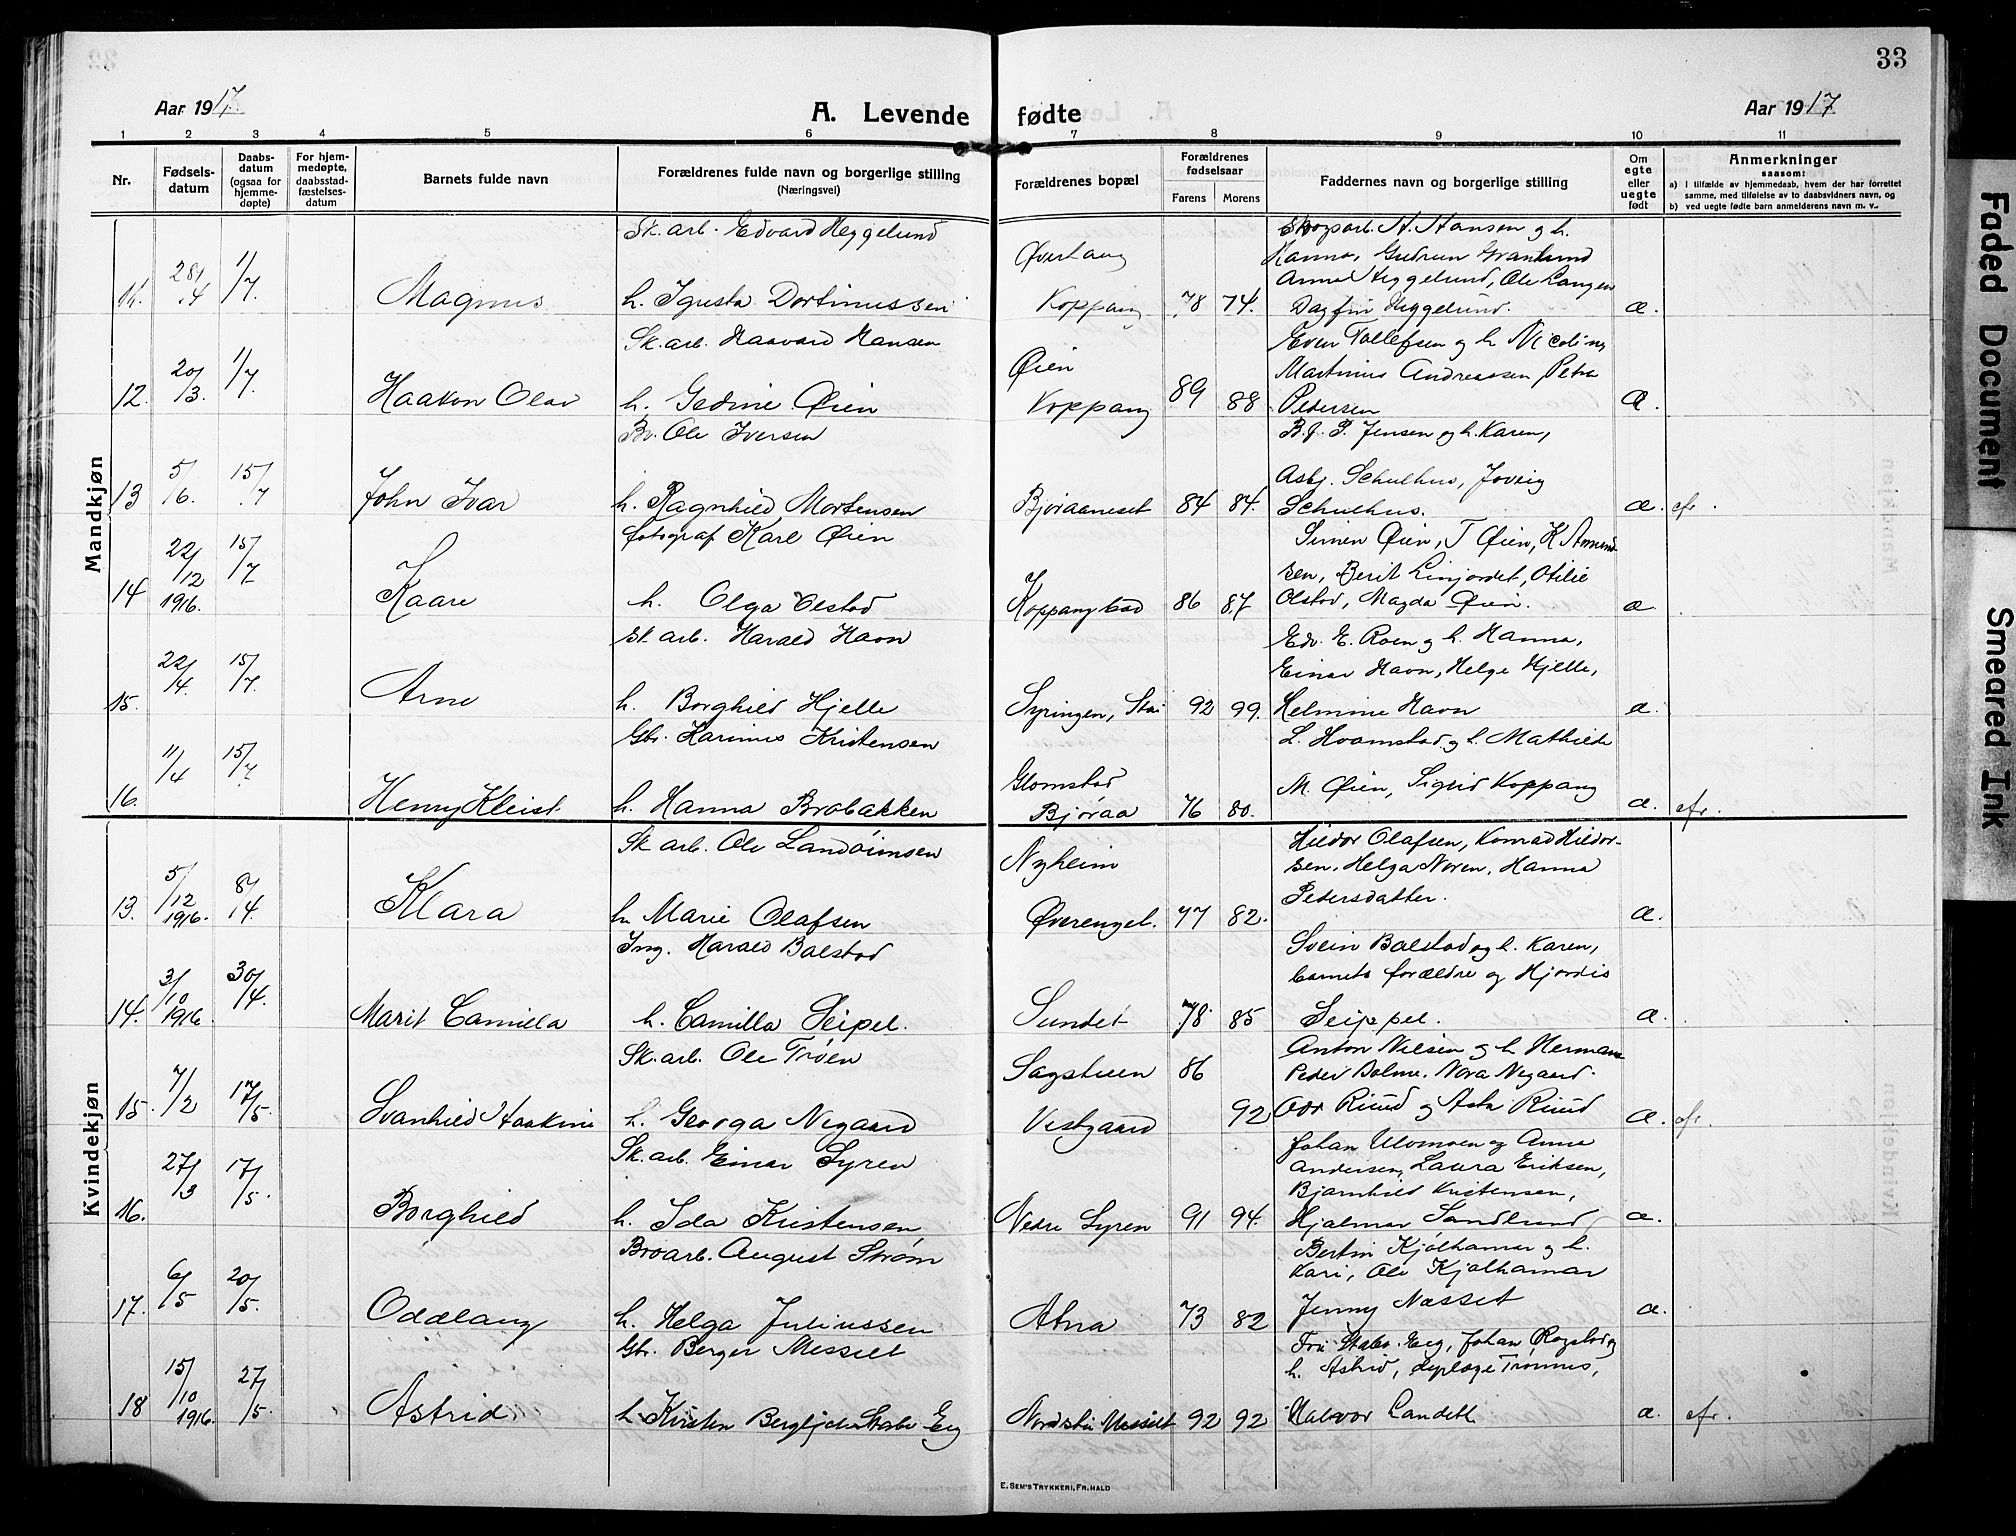 33
Aar 1917
A. Levende fødte
Aar 1917
1 2 3 4 5 6 7 8 9 10 11
Nr.
Fødsels-
datum
Daabs-
datum
(ogsaa for
hjemme-
døpte)
For hjem-
medøpte,
daabsstad-
fæstelses-
datum
Barnets fulde navn
Forældrenes fulde navn og borgerlige stilling
(Næringsvei)
Forældrenes bopæl
Forældrenes
fødselsaar
Farens Morens
Faddernes navn og borgerlige stilling
Om
egte
eller
uegte
født
Anmerkninger
saasom:
a) i tilfælde av hjemmedaab, hvem der har forrettet
samme, med tilføielse av to daabsvidners navn, og
b) ved uegte fødte barn anmelderens navn m. v.
Mandkjøn
Sk. arb. Edvard Heggelund
Skogsarb. A. Hansen og h.
Hanna, Gudrun Granlund
Anna Heggelund, Ole Langen
11. 28/4 1/7. Magnus h. Igusta Dortinussen Koppang 78 74. Dagfin Heggelund. æ.
Sk. arb. Haavard Hansen
Even Tollefsen og h. Nicoline
Øien
Martinus Andreassen, Petra
12. 20/3. 1/7. Haakon Olav h. Gedine Øien Koppang 89 88 Pedersen æ.
Bv. Ole Iversen
B.f. P. Jensen og h. Karen,
Asbj. Schulhus, Joveig
13 5/6. 15/7 John Ivar h. Ragnhild Mortensen Bjøraaneset 84 84. Schulhus. æ. efr.
fotograf Karl Øien
Simen Øien, T Øien, K Amund-
sen, Berit Linjordet, Otilie
14 22/12 1916. 15/7. Kaare h. Olga Olstad 86 87 Olstad, Magda Øien. æ.
Sk. arb. Harald Havn
Edv. E. Roen og h. Hanna,
Einar Havn, Helge Hjelle,
15. 22/4. 15/7. Arne h. Borghild Hjelle Syringen, Stai 92 99. Helmine Havn æ.
Gbr. Karinus Kristensen
L. Hvamstad og h. Mathilde
Glomstad
M. Øien, Sigrid Koppang
16. 11/4 15/7. Henry Kleist h. Hanna Brobakken Bjøraa 76 80. æ. efr.
Kvindekjøn
Sk. arb. Ole Landvinsen
Hildor Olafsen, Konrad Hildor-
Nyheim
sen, Helga Noren, Hanna
Pedersdatter.
13. 5/12 1916. 8/4. Klara h. Marie Olafsen Øverenget. 77 82. æ.
Ing. Harald Balstad
Svein Balstad og h. Karen,
barnets forældre og Hjørdis
14. 3/10 1916. 30/4. Marit Camilla h. Camilla Seipel. Sundet 78. 85 Seippel. æ.
Sk. arb. Ole Trøen
Anton Nilsen og h. Herman
Sagstuen 86
Peder Bolme. Nora Negaard.
15. 7/2 17/5. Svanhild Haakine h. Georga Negaard Vestgaard 92 Odd Riiud og Asta Riiud æ. efr.
Sk. arb. Einar Syren
Johan Ulvmoen og Anna
Andersen, Laura Eriksen,
Bjarnhild Kristensen,
16. 27/3 17/5. Borghild h. Ida Kristensen Nedre Syren 91 94. Hjalmar Sandlund æ.
Broarb. August Strøm
Bertin Kjølhamar og h.
Kari, Ole Kjølhamar
17. 6/5 20/5. Oddlaug h. Helga Juliussen Atna 73 82 Jenny Nesset æ.
Gbr. Berger Messelt
Fru Stabo-Eeg, Johan Rogstad og
h. Astrid, dyrlæge Trønnes,
18 15/10 1916. 27/5. Astrid h. Kristen Bergljot Stabo Eeg Nordstu Messelt 92 92 Halvor Landet æ. efr.
E. SEM'S TRYKKERI, FR. HALD
Faded Document
Smeared Ink